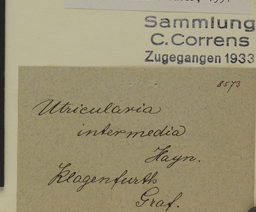 Sammlung
C. Correns
Zugegangen 1933
8573
Utricularia
intermedia
Hayn.
Klagenfurth
Graf.